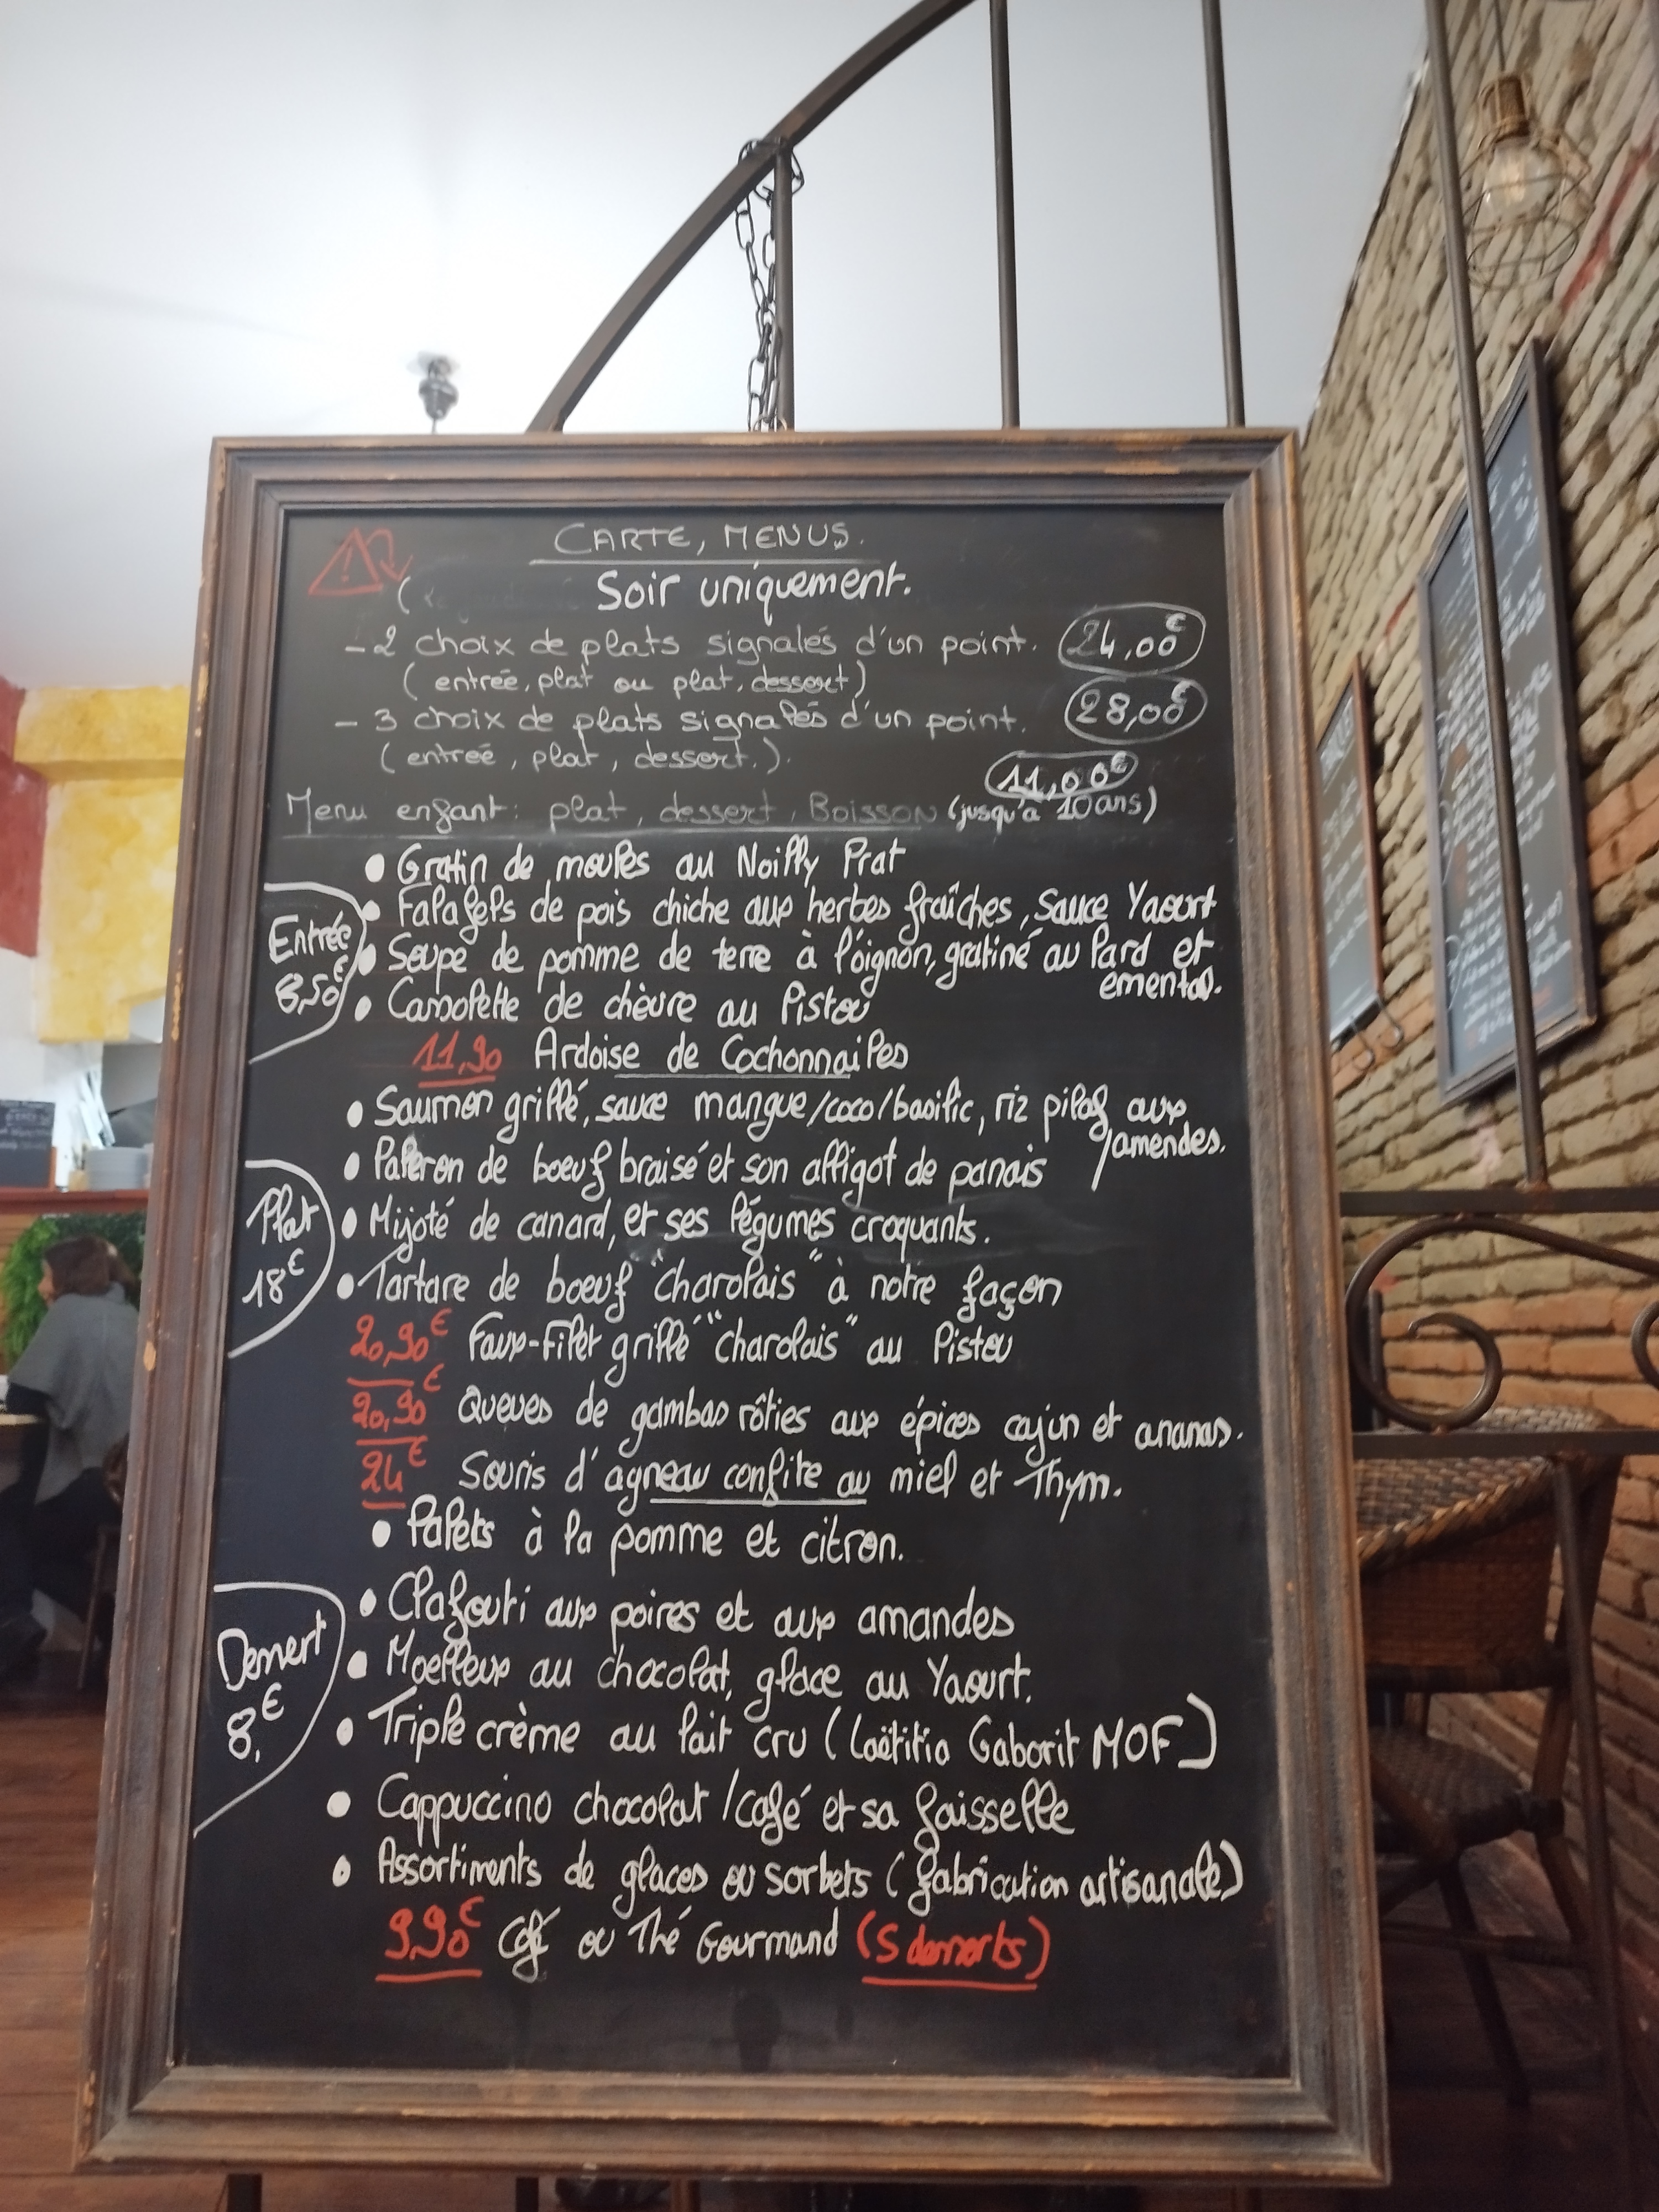 CARTE, MENUS.
Soir uniquement.
- 2 choix de plats signalés d'un point. 24,00€
( entrée, plat ou plat, dessert)
- 3 choix de plats signalés d'un point. 28,00€
( entreé, plat, dessert.).
11,00€
Menu enfant: plat, dessert, Boisson (jusqu'à 10ans)
• Gratin de moules au Noilly Prat
• Falafels de pois chiche aux herbes fraîches, sauce Yaourt
Entrée
• Soupe de pomme de terre à l'oignon, gratiné au lard et
emental.
8,50€
• Cassolette de chèvre au Pistou
11,90 Ardoise de Cochonnailles
• Saumon grillé, sauce mangue/coco/basilic, riz pilaf aux
/amendes.
• Paleron de boeuf braisé et son alligot de panais
Plat
• Mijoté de canard, et ses légumes croquants.
18€
• Tartare de boeuf "charolais" à notre façon
20,90€ Faux-Filet grillé "charolais" au Pistou
20,90€ Queues de gambas rôties aux épices cajun et ananas.
24€ Souris d'agneau confite au miel et Thym.
• Palets à la pomme et citron.
• Clafouti aux poires et aux amandes
Dessert
• Moelleux au chocolat, glace au Yaourt.
8,€
• Triple crème au lait cru (Laëtitia Gaborit MOF)
• Cappuccino chocolat /café et sa faisselle
• Assortiments de glaces ou sorbets (fabrication artisanale)
9,90€ Café ou Thé Gourmand (5 desserts)